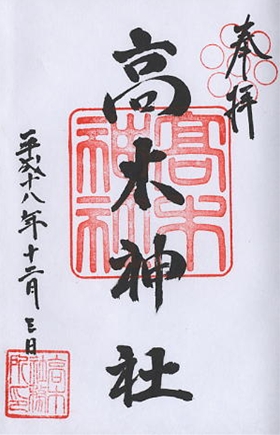 奉拝
高木神社
平成十八年十二月三日
高木神社